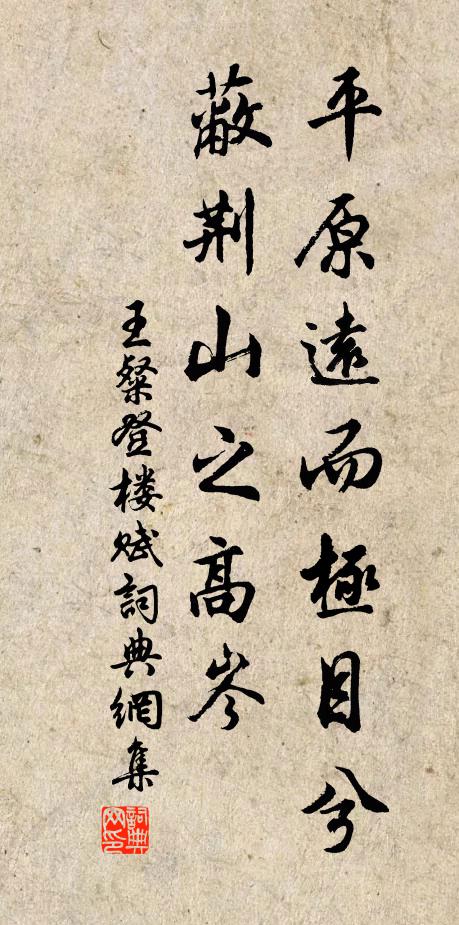 平原遠而極目兮
蔽荆山之高岑
王粲登楼賦詞典網集
詞典网印